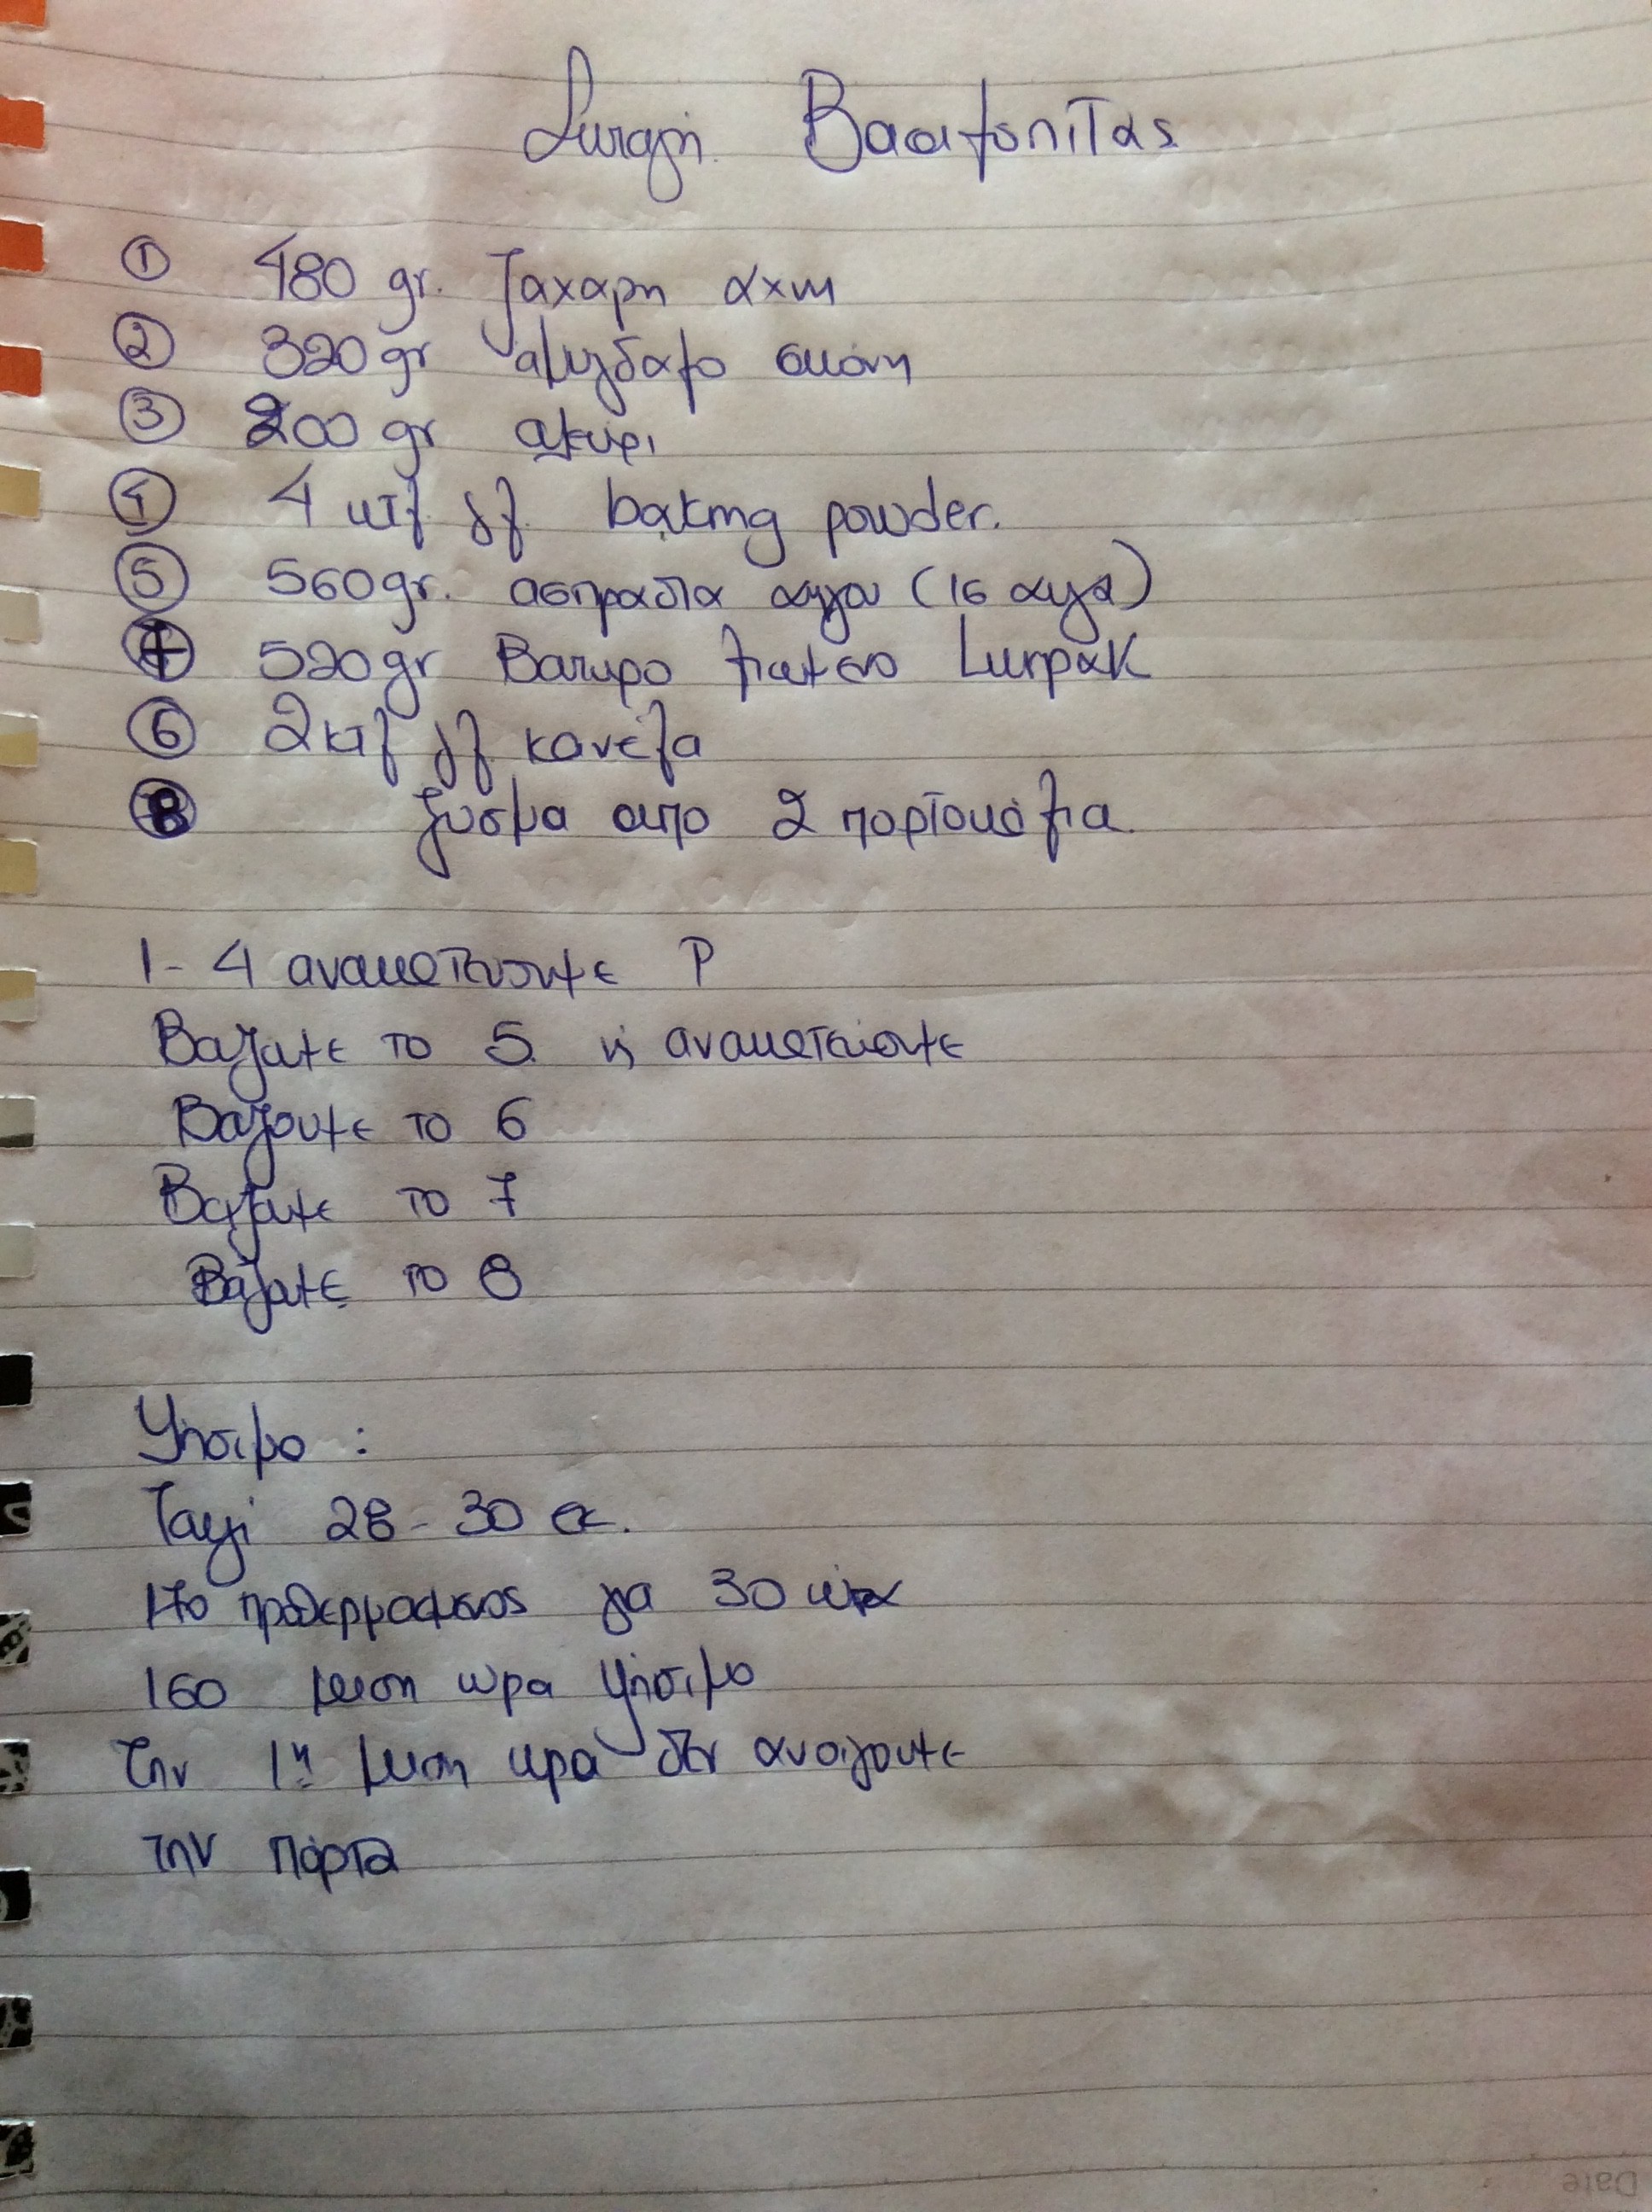 Συνταγή Βασιλόπιτας
① 480 gr. ζαχαρη αχνη
② 320 gr αμυγδαλο σκόνη
③ 200 gr αλευρι
④ 4 κτλ γλ baking powder.
⑤ 560 gr. ασπραδια αυγου (16 αυγα)
⑦ 520 gr Βουτυρο λιωμενο Lurpak
⑥ 2 κτλ γλ κανέλα
⑧ ξυσμα απο 2 πορτοκάλια.
1-4 ανακατευουμε
Βαζουμε το 5 ανακατευουμε
Βαζουμε το 6
Βαζουμε το 7
Βάζουμε το 8
Ψησιμο :
Ταψι 28-30 εκ.
170 προθερμασμενος για 30
160 μιση ωρα ψήσιμο
Την 1η μιση ωρα δεν ανοιγουμε
την πόρτα
Date